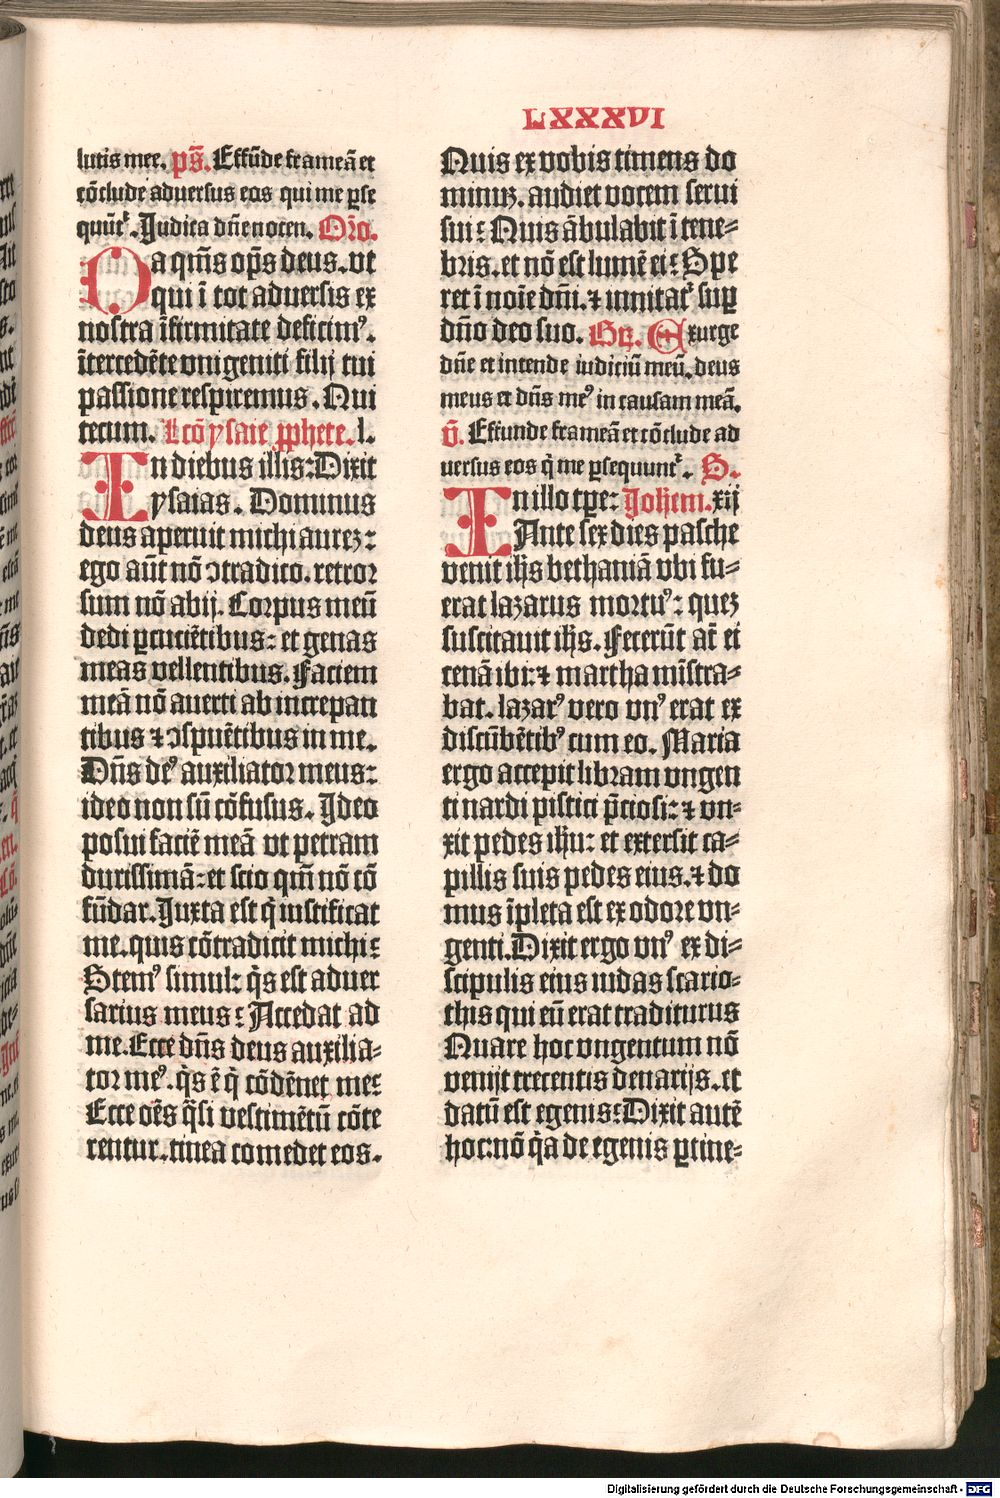 LXXXVI
lutis mee. ps̄. Effūde frameā et
cōclude adversus eos qui me ꝑse
quūtˀ. Judica dn̄e nocen. Or̄o.
Da qm̄s op̄s deus. vt
qui ī tot adversis ex
nostra īfirmitate deficimꝰ.
ītercedēte vnigeniti filij tui
passione respiremus. Qui
tecum. Lcō ysaie ꝓphete. l.
In diebus illis: Dixit
ysaias. Dominus
deus aperuit michi aurez:
ego aūt nō ↄtradico. retror
sum nō abij. Corpus meū
dedi ꝑcuciētibus: et genas
meas vellentibus. Faciem
meā nō auerti ab increpan
tibus ⁊ ↄspuētibus in me.
Dn̄s deꝰ auxiliator meus:
ideo non sū cōfusus. Jdeo
posui faciē meā vt petram
durissimā: et scio qm̄ nō cō
fūdar. Juxta est q̄ iustificat
me. quis cōtradicit michi:
Stemꝰ simul: q̄s est aduer
sarius meus: Accedat ad
me. Ecce dn̄s deus auxilia=
tor meꝰ. q̄s ē q̄ cōdēnet me:
Ecce oēs q̄si vestimētū cōte
rentur. tinea comedet eos.
Quis ex vobis timens do
minuz. audiet vocem serui
sui: Quis ābulabit ī tene=
bris. et nō est lumē ei: Spe
ret ī noīe dn̄i. ⁊ innitatˀ suꝑ
dn̄o deo suo. Gr̄. Exurge
dn̄e et intende iudiciū meū. deus
meus et dn̄s meꝰ in causam meā.
v̄. Effunde frameā et cōclude ad
versus eos q̄ me ꝑsequuntˀ. S.
In illo tꝑe: Johem. xij
Ante sex dies pasche
venit ih̄s bethaniā vbi fu=
erat lazarus mortuꝰ: quez
suscitauit ih̄s. Fecerūt at̄ ei
cenā ibi: ⁊ martha mīstra=
bat. lazarꝰ vero vnꝰ erat ex
discūbētibꝰ cum eo. Maria
ergo accepit libram vngen
ti nardi pistici p̄ciosi: ⁊ vn=
xit pedes ih̄u: et extersit ca=
pillis suis pedes eius. ⁊ do
mus īpleta est ex odore vn=
genti. Dixit ergo vnꝰ ex di=
scipulis eius iudas scario=
this qui eū erat traditurus
Quare hoc vngentum nō
venijt trecentis denarijs. et
datū est egenis: Dixit autē
hoc: nō q̄a de egenis ꝑtine=
Digitalisierung gefördert durch die Deutsche Forschungsgemeinschaft - DFG